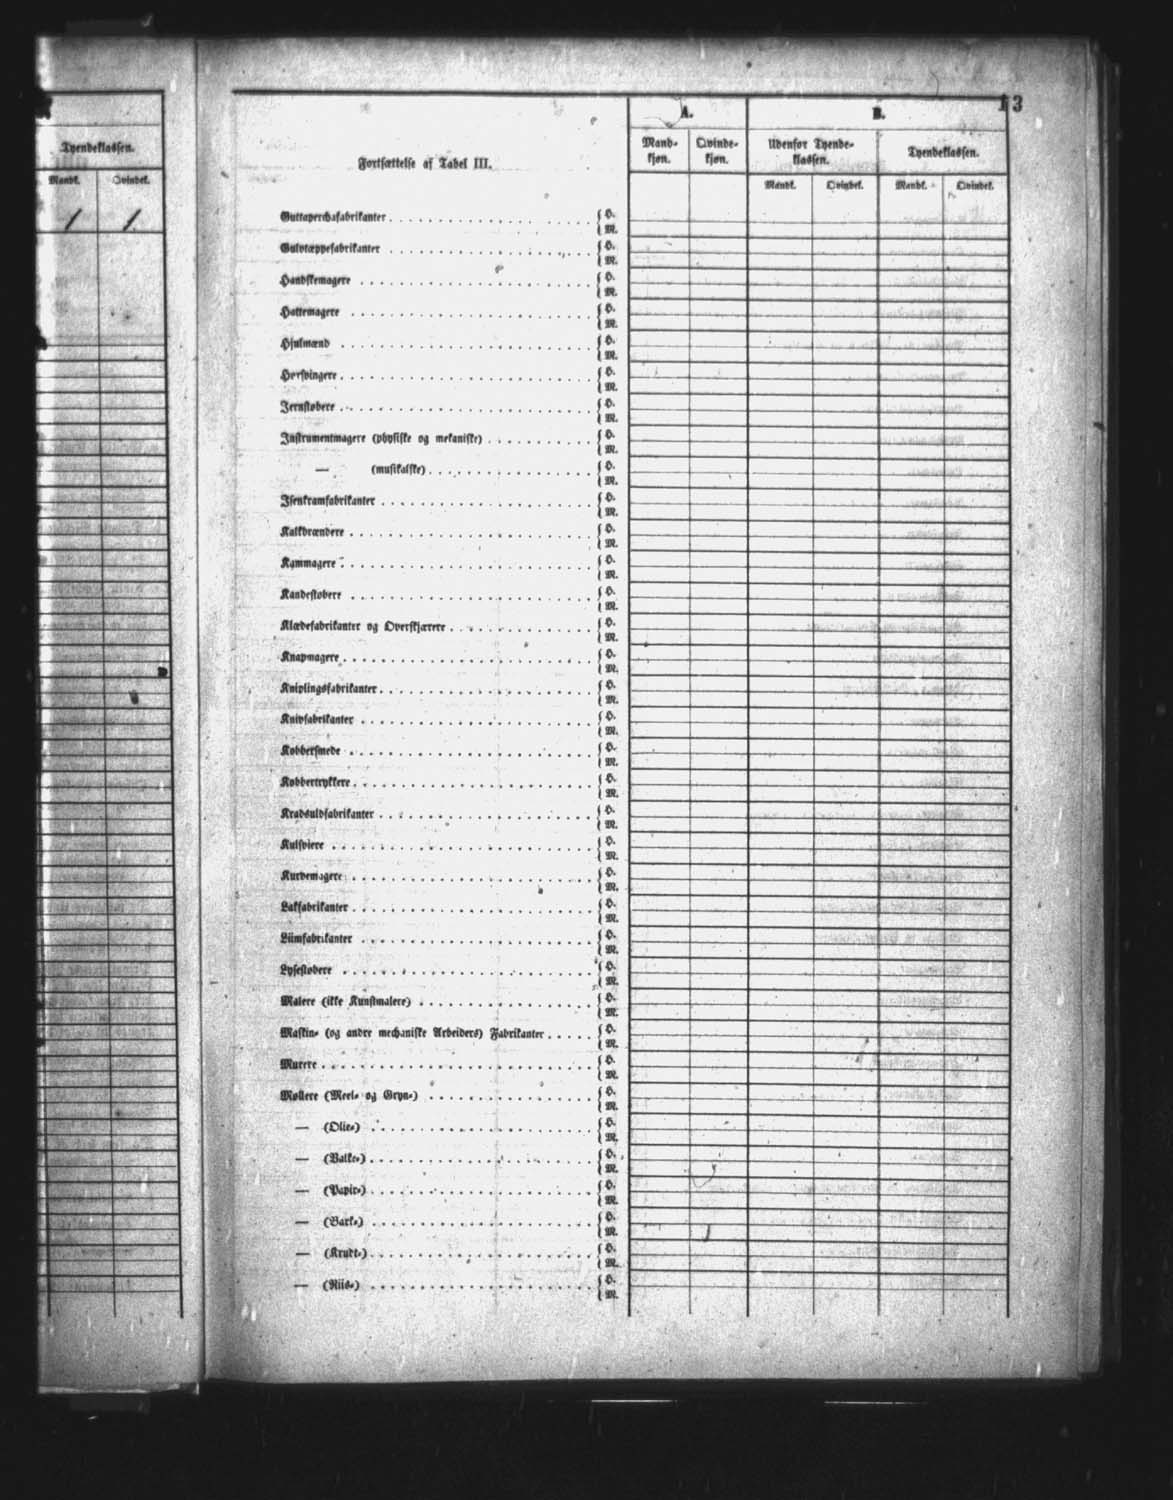 Tyendeklassen.
Mandk. Qvindek.
1 1
13
A. B.
Fortsættelse af Tabel III.
Mandkjøn. Qvindekjøn. Udenfor Tyendeklassen. Tyendeklassen.
Mandk. Qvindek. Mandk. Qvindek.
Guttaperchafabrikanter { H. M.
Gulvtæppefabrikanter { H. M.
Handskemagere { H. M.
Hattemagere { H. M.
Hjulmænd { H. M.
Hørsvingere { H. M.
Jernstøbere { H. M.
Instrumentmagere (physiske og mekaniske) { H. M.
— (musikalske) { H. M.
Isenkramfabrikanter { H. M.
Kalkbrændere { H. M.
Kammagere { H. M.
Kandestøbere { H. M.
Klædefabrikanter og Overskjærere { H. M.
Knapmagere { H. M.
Kniplingsfabrikanter { H. M.
Knivfabrikanter { H. M.
Kobbersmede { H. M.
Kobbertrykkere { H. M.
Kradsuldfabrikanter { H. M.
Kulsviere { H. M.
Kurvemagere { H. M.
Lakfabrikanter { H. M.
Liimfabrikanter { H. M.
Lysestøbere { H. M.
Malere (ikke Kunstmalere) { H. M.
Maskin- (og andre mechaniske Arbeiders) Fabrikanter { H. M.
Murere { H. M.
Møllere (Meel- og Gryn-) { H. M.
— (Olie-) { H. M.
— (Valke-) { H. M.
— (Papir-) { H. M.
— (Bark-) { H. M.
— (Krudt-) { H. M.
— (Riis-) { H. M.